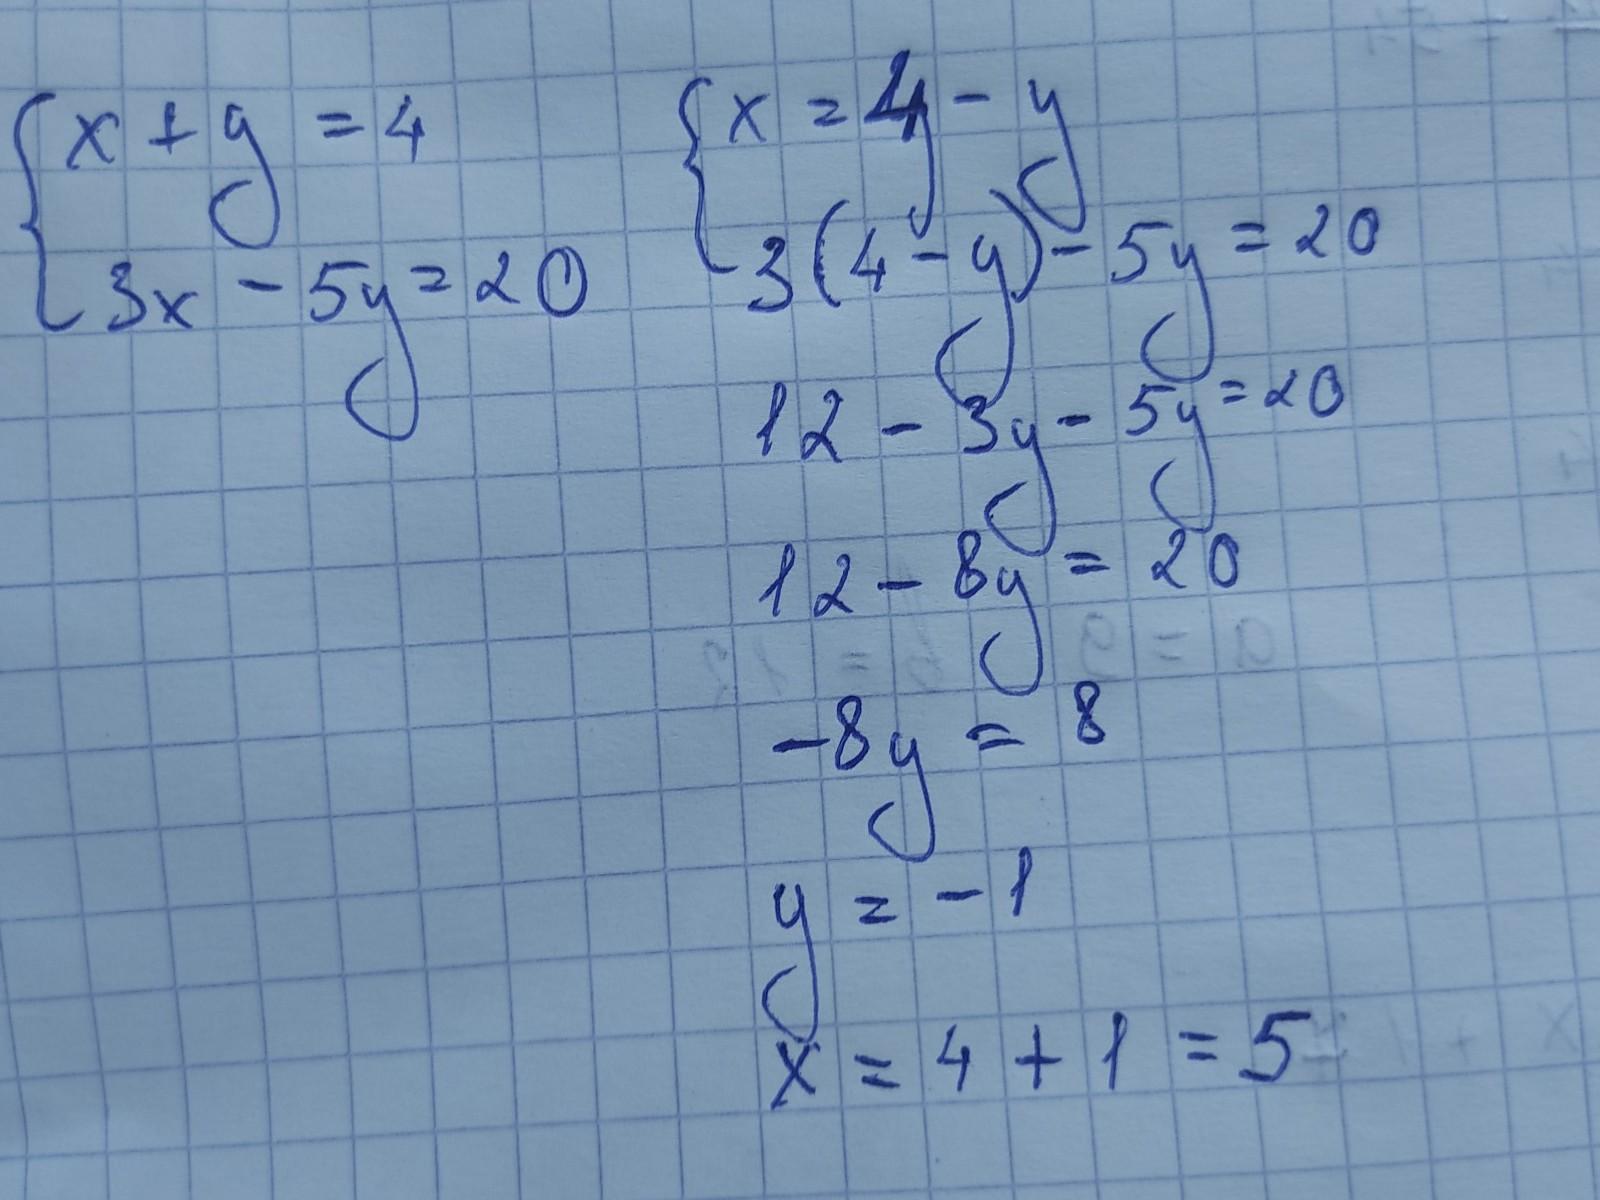 x + y = 4
3x - 5y = 20
x = 4 - y
3(4 - y) - 5y = 20
12 - 3y - 5y = 20
12 - 8y = 20
-8y = 8
y = -1
x = 4 + 1 = 5